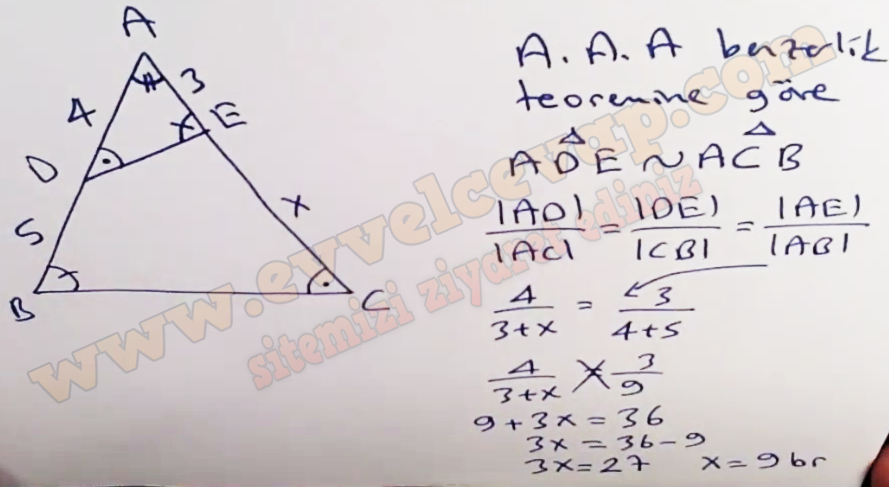 A
4
3
D
E
5
x
B
C
A.A.A benzerlik
teoremine göre
ADE ~ ACB
|AD| / |AC| = |DE| / |CB| = |AE| / |AB|
4 / 3+x = 3 / 4+5
4 / 3+x × 3 / 9
9+3x=36
3x=36-9
3x=27 x=9br
www.evvelcevap.com
sitemizi ziyaret ediniz